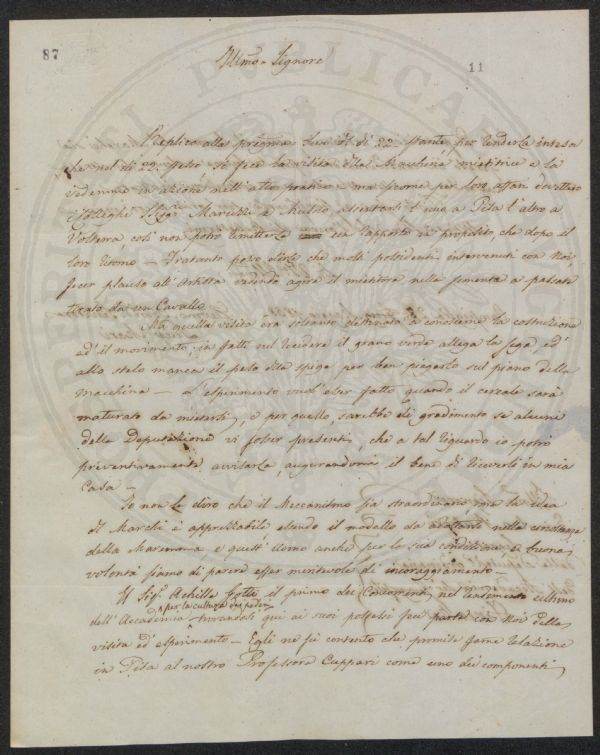 87
11
Illmo. Signore
Replico alla pregma. Sua del dì 22. stante, per renderla intesa
che nel dì 22. detto si fece la visita della Macchina mietitrice e la
vedemmo in azione nell'atto pratico — ma siccome per loro affari dovettero
i Colleghi Sigg. Marcucci e assentarsi l'uno a Pisa l'altro a
Volterra così non potrò rimetterle un rapporto in proposito, che dopo il
loro ritorno — Frattanto posso dirle che molti possidenti intervenuti con Noi,
fecer plauso all'Artista vedendo agire il mietitore nella sementa a
tirato da un Cavallo.
Ma quella visita era soltanto destinata a conoscerne la costruzione
ed il movimento; in fatti nel recidere il grano verde allega la sega, ed
allo stelo manca il peso della spiga per ben piegarsi sul piano della
macchina — L'esperimento vuol esser fatto quando il cereale sarà
maturato da mietersi, e per quello, sarebbe di gradimento se alcuni
della Deputazione vi fosser presenti, che a tal riguardo io potrò
preventivamente avvisarla, augurandomi il bene di riceverli in mia
Casa —
Io non le dirò che il Meccanismo sia straordinario ma la idea
del Marchi è apprezzabile essendo il modello da adattarsi nelle circostanze
della Maremma e quest'uomo anche per la sua condizione e buona
volontà siamo di parere esser meritevole di incoraggiamento.
Il Sigr. Achille Gotti il primo dei Concorrenti nel
dell'Accademia per la cultura dei poderi trovandosi qui ai suoi possessi fece parte con Noi della
visita ed esperimento — Egli ne fu contento che promise farne relazione
in Pisa al nostro Professore Cuppari come uno dei componenti